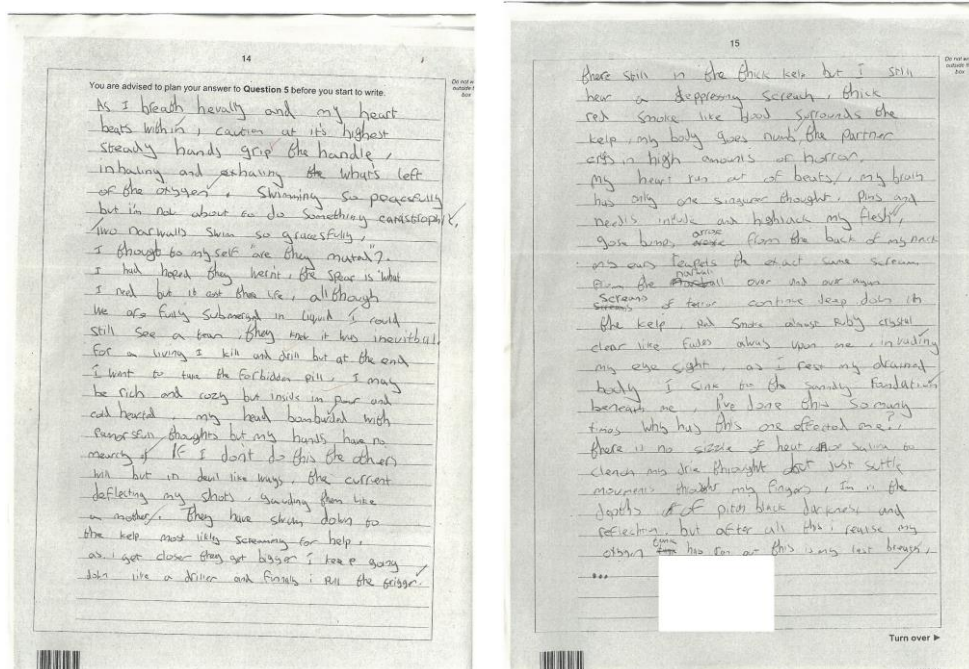 14
Do not w
outside t
box
You are advised to plan your answer to Question 5 before you start to write.
As I breath hevally and my heart
beats within, caution at it's highest
steady hands grip the handle,
inhaling and exhaling the what's left
of the oxygen. Swimming so peacefully
but i'm now about to do something
Two narwalls Swim so gracesfully,
I thought to my self "are they mated"?
I had hoped they wernt, the spear is what
I need but it cost their life, allthough
we are fully Submerged in Liquid I could
still See a tear, they knew it was inevitbal.
for a living I kill and drill but at the end
I want to turn the forbidden pill, I may
be rich and cozy but inside im poor and
cold hearted my head bombarded with
thoughts but my hands have no
mearcy if If I don't do this the others
will but in devil like ways, the current
deflecting my shots, guarding them like
a mother. They have swam down to
the kelp most likly screaming for help.
as i get closer they get bigger i keep going
down like a driller and finnaly i pull the trigger.
15
Do not w
outside t
box
there still in the thick kelp but I still
hear a deppressing screach, thick
red smoke like blood surrounds the
kelp, my body goes numb, the partner
crys in high amounts of horror.
My heart run out of beats, my brain
has only one singurer thought. Pins and
needls intrude and highsack my flesh,
gose bumps arrise from the back of my neck
my ears repets the exact same scream
from the narwall over and over again
screams of terror continue deep down in
the kelp, Red Smoke almost Ruby crystal
clear like fades away upon me, invading
my eye sight, as i rest my drained
body I sink too the sandy foundation
beneath me, I've done this so many
times why has this one effected me?
there is no sizzle of heat nor saliva to
clench my drie throught but Just suttle
movements my fingers, Im in the
depths of pitch black darkness and
reflection but after all this i realise my
oxygen has ran out this is my last breath,
...
Turn over ▶